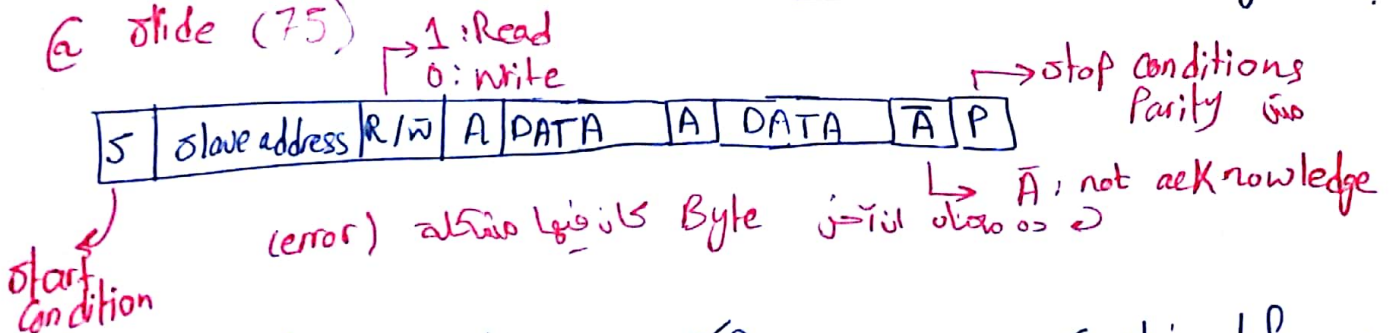 @ slide (75)
1: Read
0: Write
stop conditions
مش Parity
S | slave address | R/W̅ | A | DATA | A | DATA | A̅ | P
A̅: not acknowledge
ده معناه ان آخر Byte كان فيها مشكلة (error)
start
condition